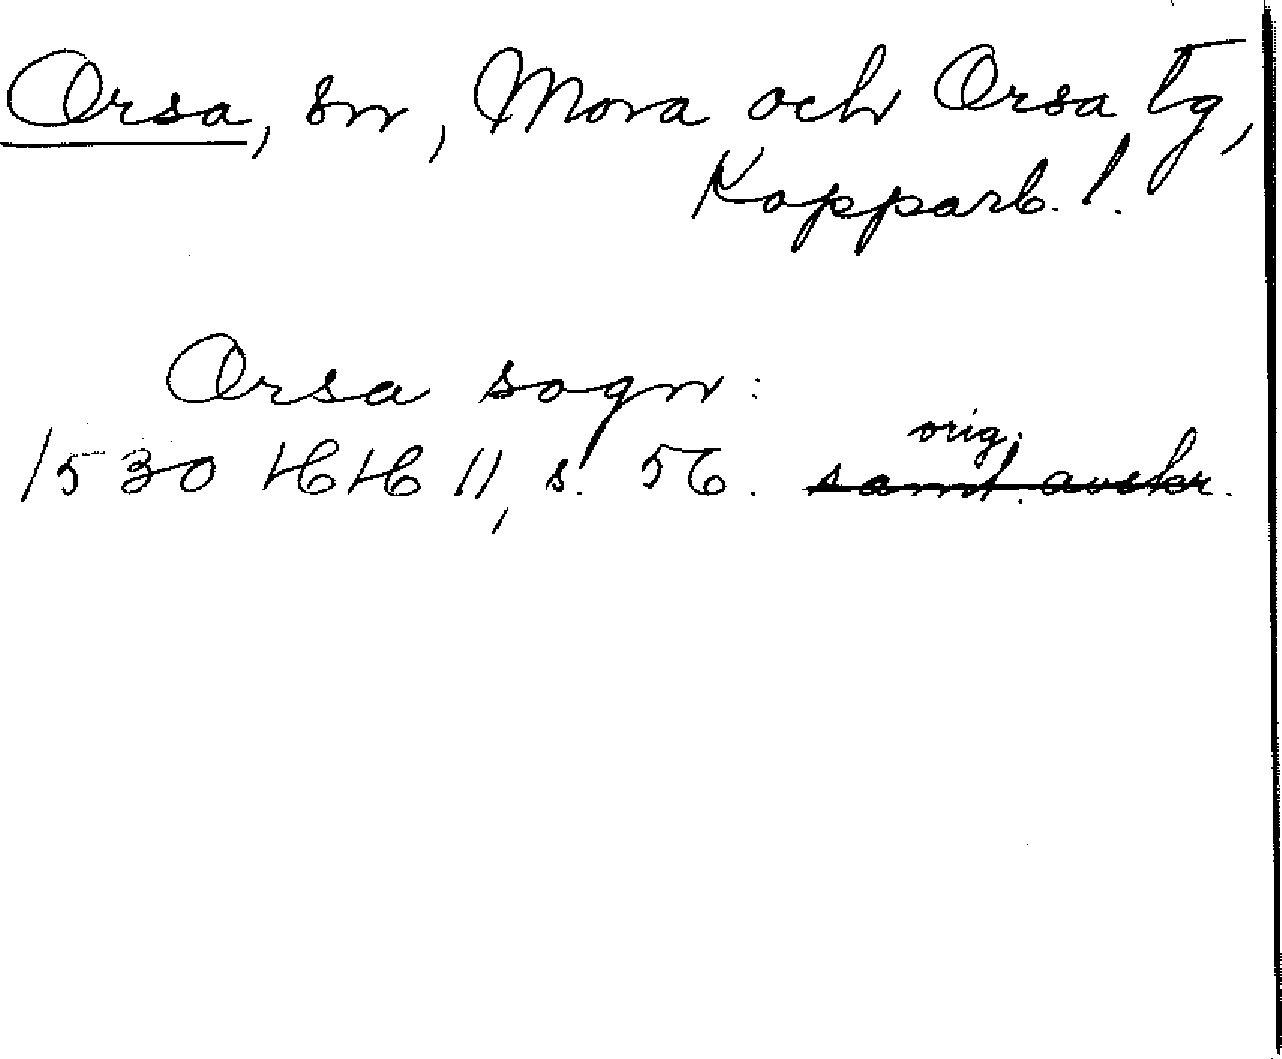 Orsa, sn, Mora och Orsa tg,
Kopparb. l.
Orsa sogn:
orig.
1530 HH 11, s. 56. samt. avskr.